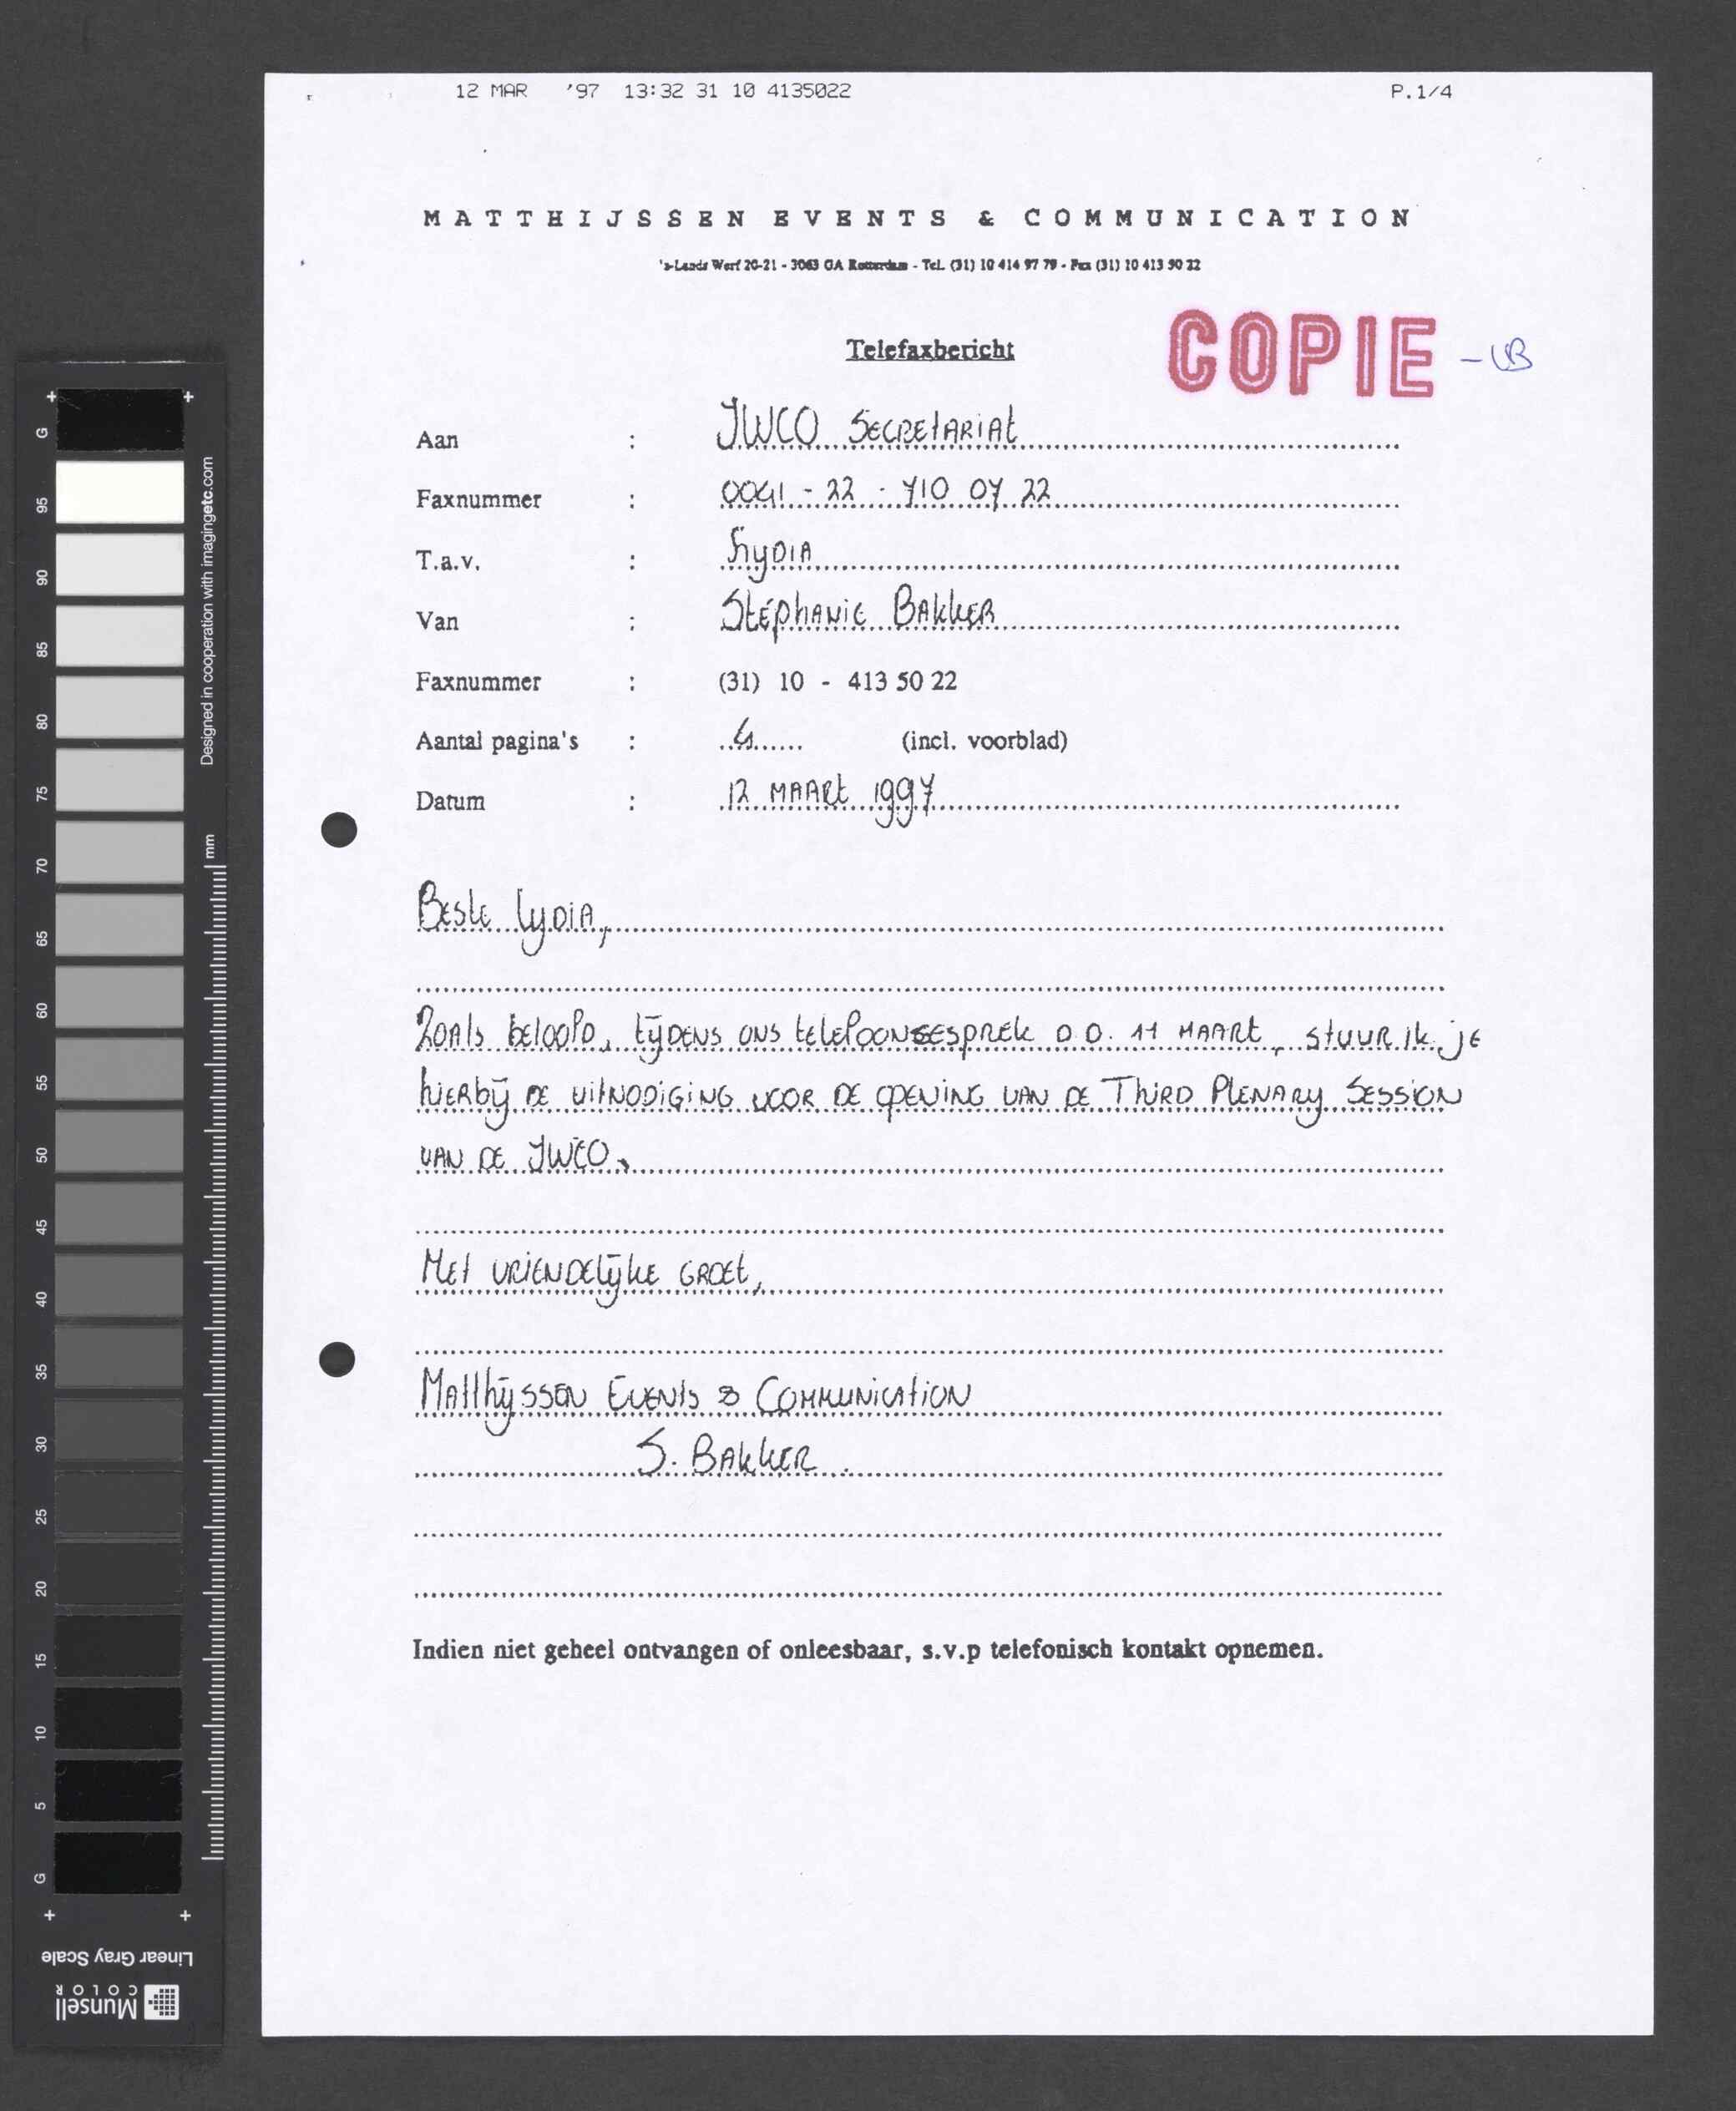 12 MAR '97 13:32 31 10 4135022 P.1/4
MATTHIJSSEN EVENTS & COMMUNICATION
's-Lands Werf 20-21 - 3063 GA Rotterdam - Tel. (31) 10 414 97 79 - Fax (31) 10 413 50 22
Telefaxbericht
COPIE
Aan : IWCO Secretariat
Faxnummer : 0041 - 22 - 710 07 22
T.a.v. : Lydia
Van : Stéphanie Bakker
Faxnummer : (31) 10 - 413 50 22
Aantal pagina's : 4 (incl. voorblad)
Datum : 12 maart 1997
Beste Lydia,
Zoals beloofd, tijdens ons telefoongesprek d.d. 11 maart, stuur ik je
hierbij de uitnodiging voor de opening van de Third Plenary Session
van de IWCO.
Met vriendelijke groet,
Matthijssen Events & Communication
S. Bakker
Indien niet geheel ontvangen of onleesbaar, s.v.p telefonisch kontakt opnemen.
G 95 90 85 80 75 70 65 60 55 50 45 40 35 30 25 20 15 10 5 G
Designed in cooperation with imagingetc.com
mm
Linear Gray Scale
Munsell
COLOR